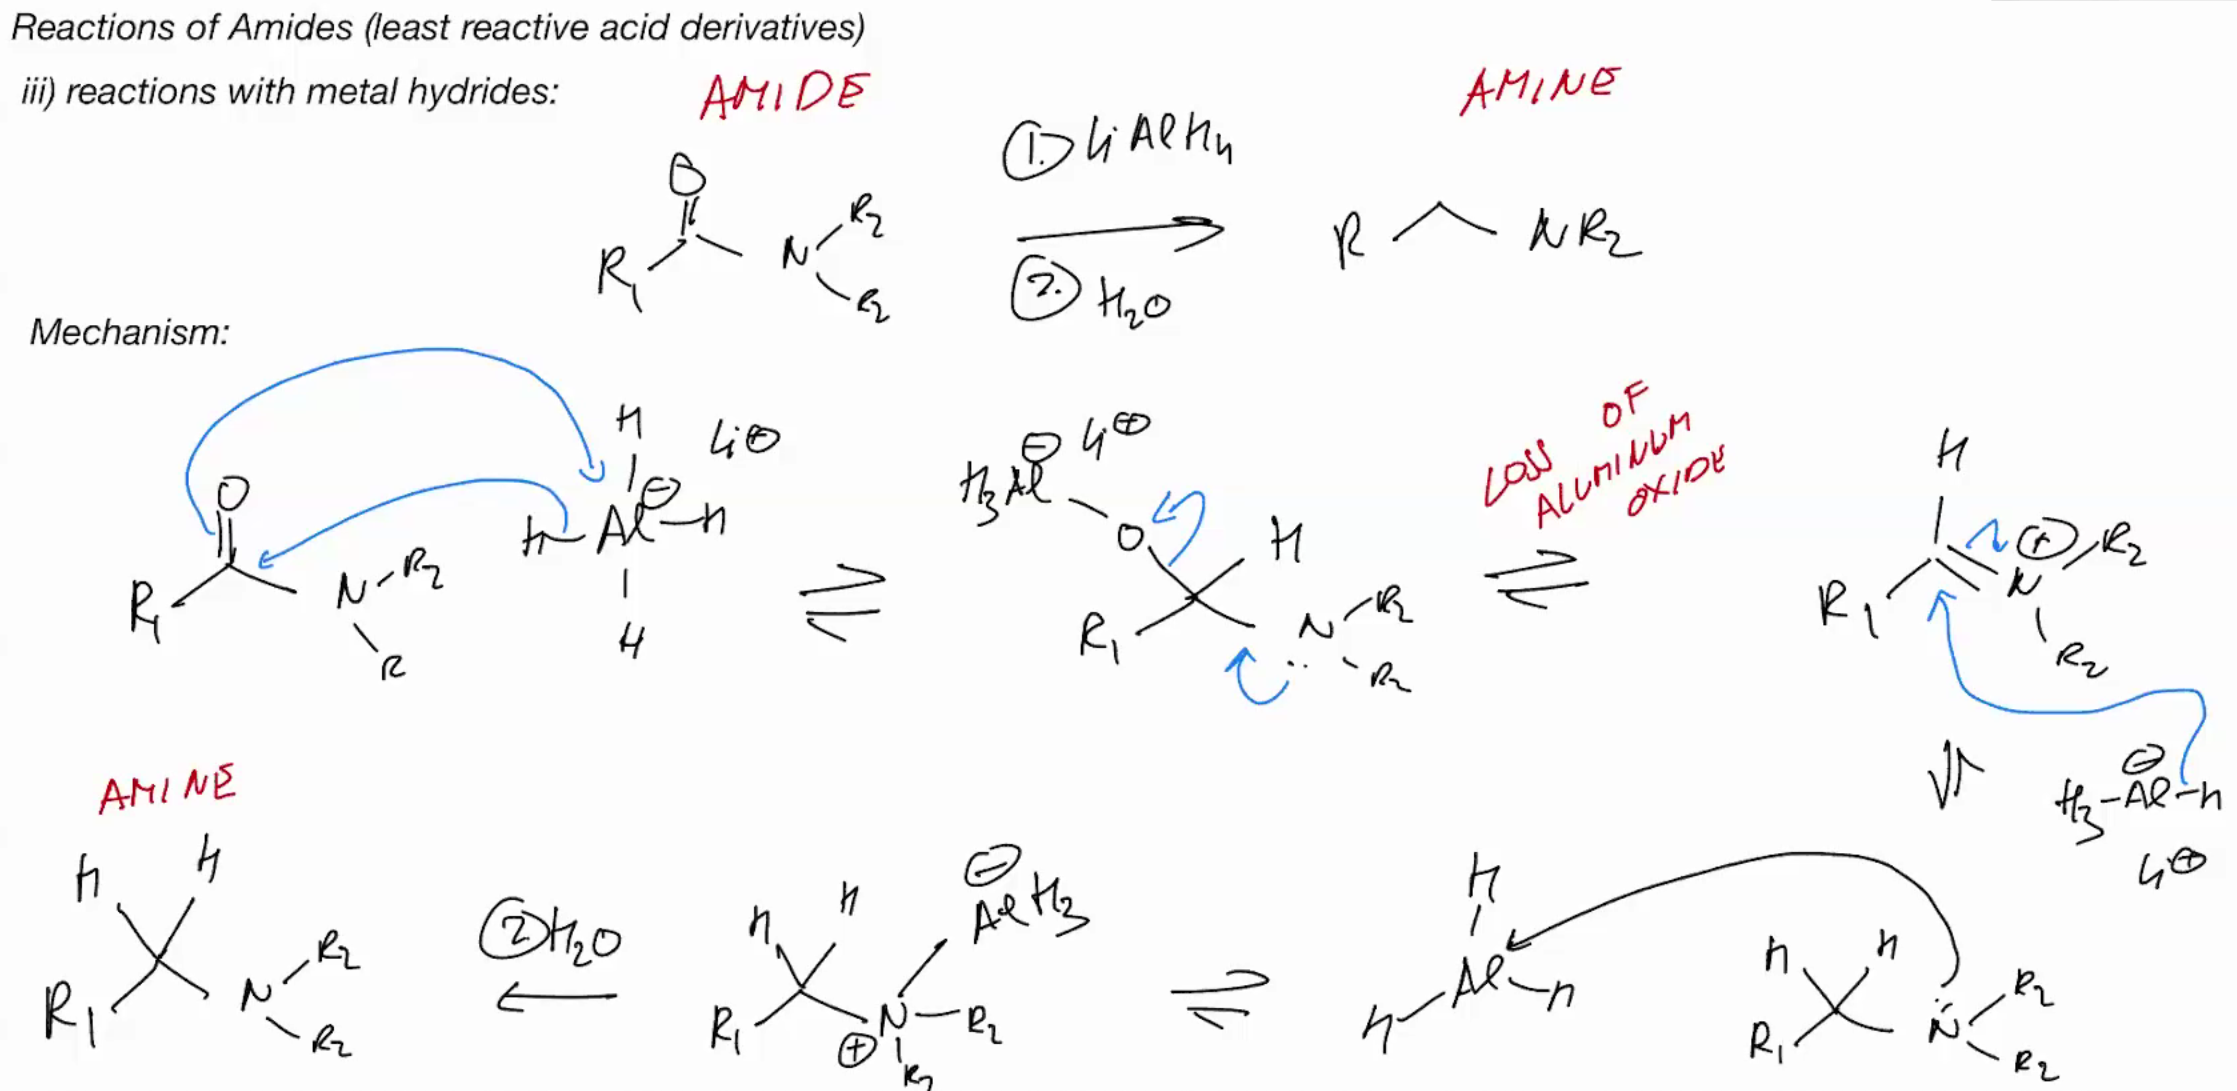 Reactions of Amides (least reactive acid derivatives)
iii) reactions with metal hydrides:
AMIDE
AMINE
O
R1
N
R2
R2
1. LiAlH4
2. H2O
R
NR2
Mechanism:
O
R1
N
R2
R
H
H
Al
⊖
H
H
Li⊕
H3Al
⊖
Li⊕
O
H
R1
N
R2
R2
LOSS OF
ALUMINUM
OXIDE
H
R1
⊕
N
R2
R2
⊖
H3-Al-H
Li⊕
AMINE
H
H
R1
N
R2
R2
2 H2O
H
H
⊖
AlH3
R1
⊕
N
R2
R2
H
Al
H
H
H
H
R1
N
R2
R2